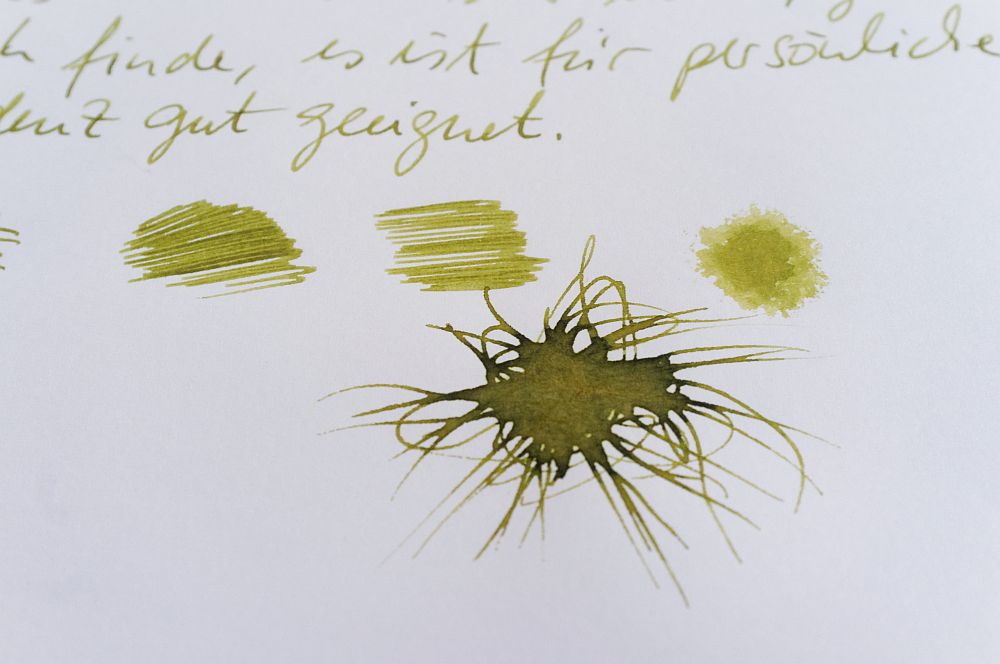 finde, es ist für persönliche
gut geeignet.